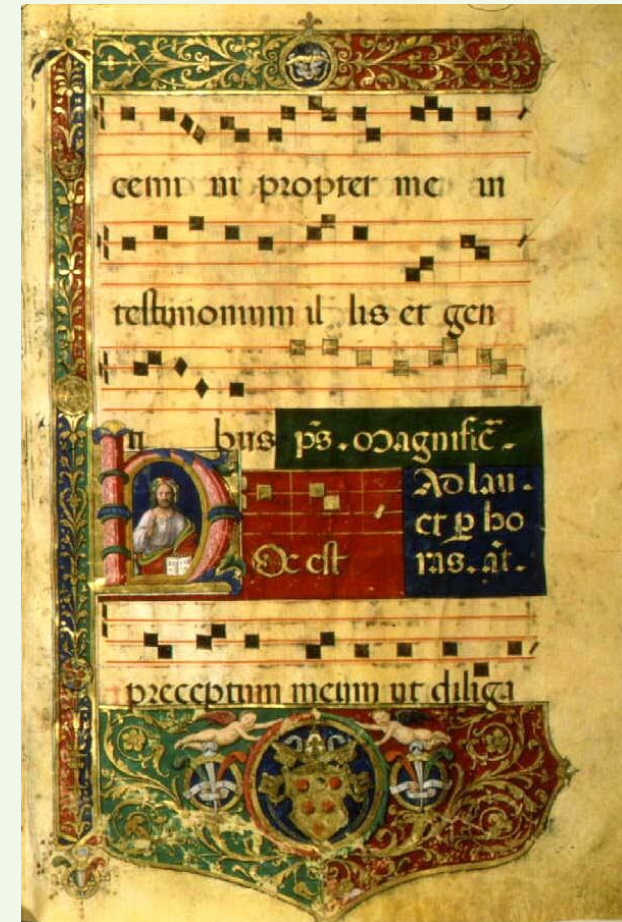 cemini propter me in
testimonium il lis et gen
ti bus ps. Magnific̄.
Ad lau.
et ꝑ ho
ras. an̄t.
Hoc est
preceptum meum ut diliga